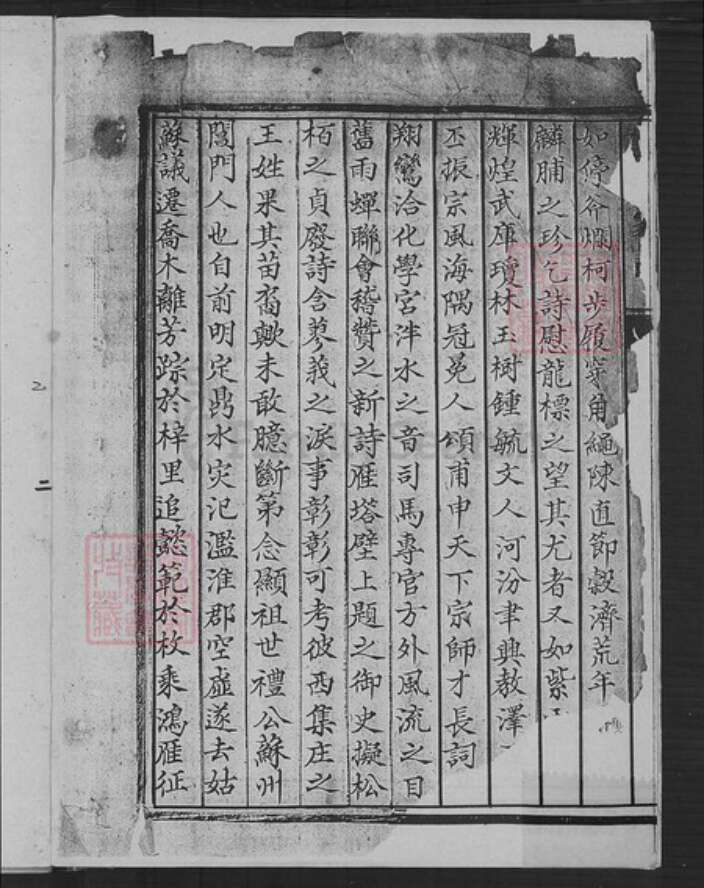 如停谷爛柯步履穿角繩陳直節穀濟荒年
麟脯之珍乞詩慰龍標之望其尤者又如紫
輝煌武庫瓊林玉樹鍾毓文人河汾聿興教澤
丕振宗風海隅冠冕人頌甫申天下宗師才長詞
翔鸞洽化學宮泮水之音司馬專官方外風流之目
舊雨蟬聯會稽贊之新詩雁塔壁上題之御史擬松
栢之貞廢詩含蓼莪之淚事彰彰可考彼西集庄之
王姓果其苗裔歟未敢臆斷第念顯祖世禮公蘇州
閶門人也自前明定鼎水灾氾濫淮郡空虛遂去姑
蘇議遷喬木離芳踪於梓里追懿範於枚乘鴻雁征
二